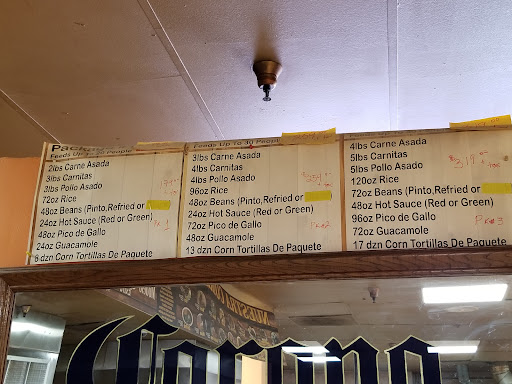 Feeds Up
People
2lbs Carne Asada
3lbs Carnitas
3lbs Pollo Asado
72oz Rice
48oz Beans (Pinto,Refried or
24oz Hot Sauce (Red or Green)
48oz Pico de Gallo
24oz Guacamole
6 dzn Corn Tortillas De Paquete
PK 1
Feeds Up To 30 People
3lbs Carne Asada
4lbs Carnitas
4lbs Pollo Asado
96oz Rice
48oz Beans (Pinto,Refried or
24oz Hot Sauce (Red or Green)
72oz Pico de Gallo
48oz Guacamole
13 dzn Corn Tortillas De Paquete
PK#2
4lbs Carne Asada
5lbs Carnitas
5lbs Pollo Asado
120oz Rice
72oz Beans (Pinto,Refried or
48oz Hot Sauce (Red or Green)
96oz Pico de Gallo
72oz Guacamole
17 dzn Corn Tortillas De Paquete
PK#3
Corona